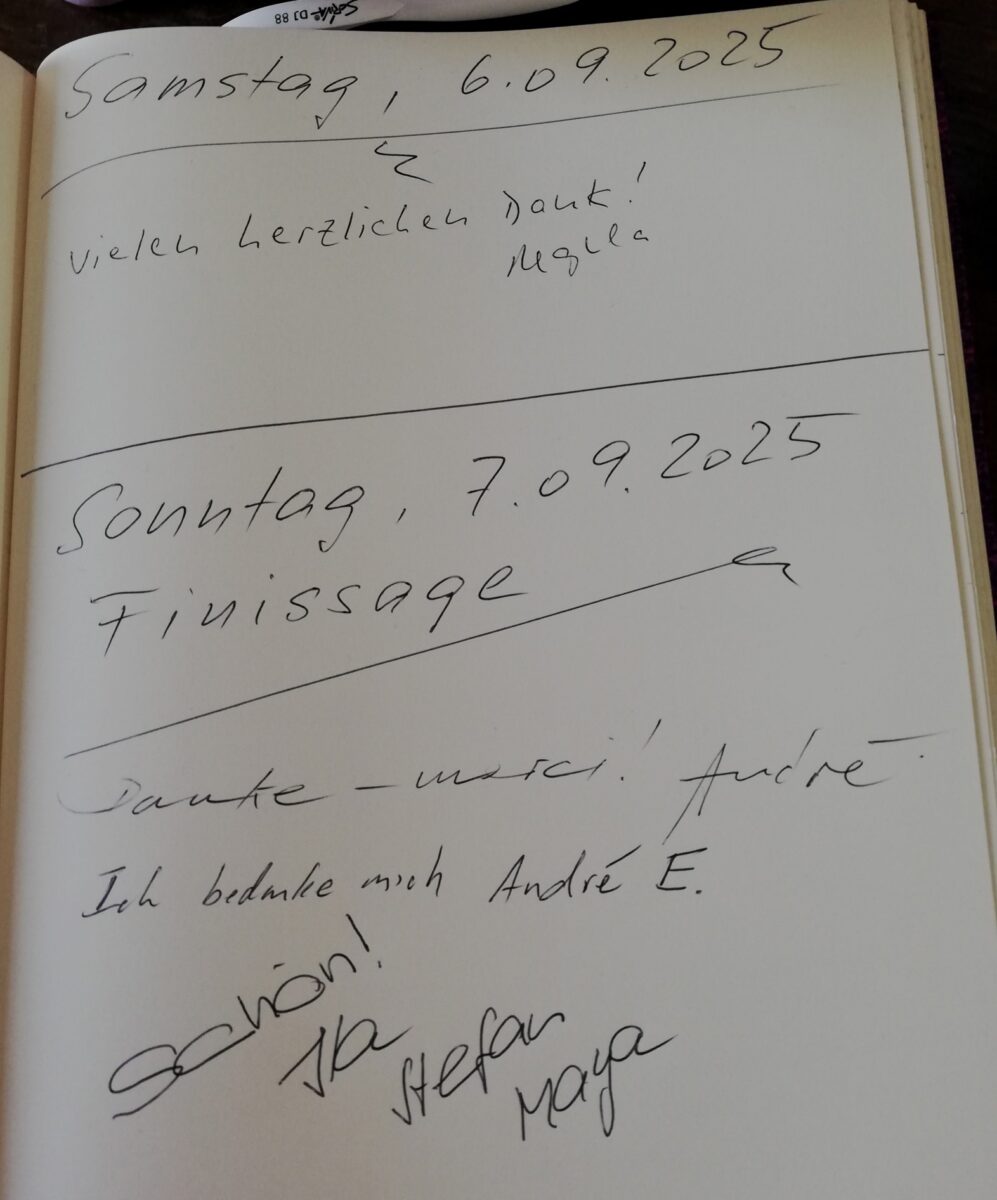 Samstag, 6.09.2025
vielen herzlichen Dank!
Regula
Sonntag, 7.09.2025
Finissage
Danke – merci! André
Ich bedanke mich André E.
Schön!
Stefan
Maya